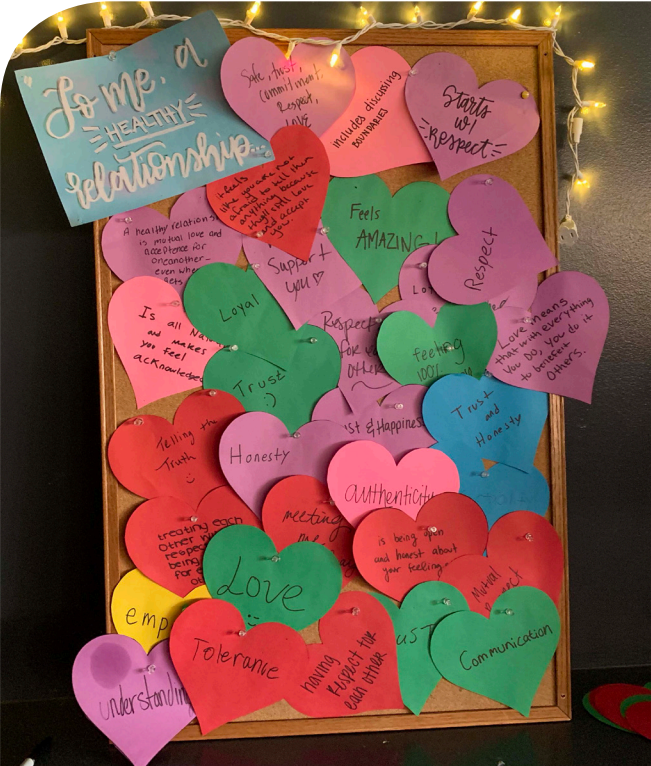 To me, a
HEALTHY
relationship...
Safe, trust,
commitment,
Respect,
LOVE
includes discussing
BOUNDARIES
Starts
w/
Respect
it feels
like you are not
afraid to tell them
anything because
they'll still love
you accept
you.
Feels
AMAZING!
Respect
A healthy relations
is mutual love and
acceptance for
oneanother-
even whe
gets
Support
you ♡
Loyal
Is all Na
and makes
you feel
acknowledge
Trust
:)
Respect
for
feeling
100%
Love means
that with everything
You Do, You do it
to benefit
Others.
st & Happines
Trust
and
Honesty
Telling the
Truth
Honesty
authenticity
treating each
other wi
respec
being
for e
meeting
me
is being open
and honest about
your feelings
Mutual
Love
emp
Tolerance
having
Respect for
each other
UST
Communication
understanding